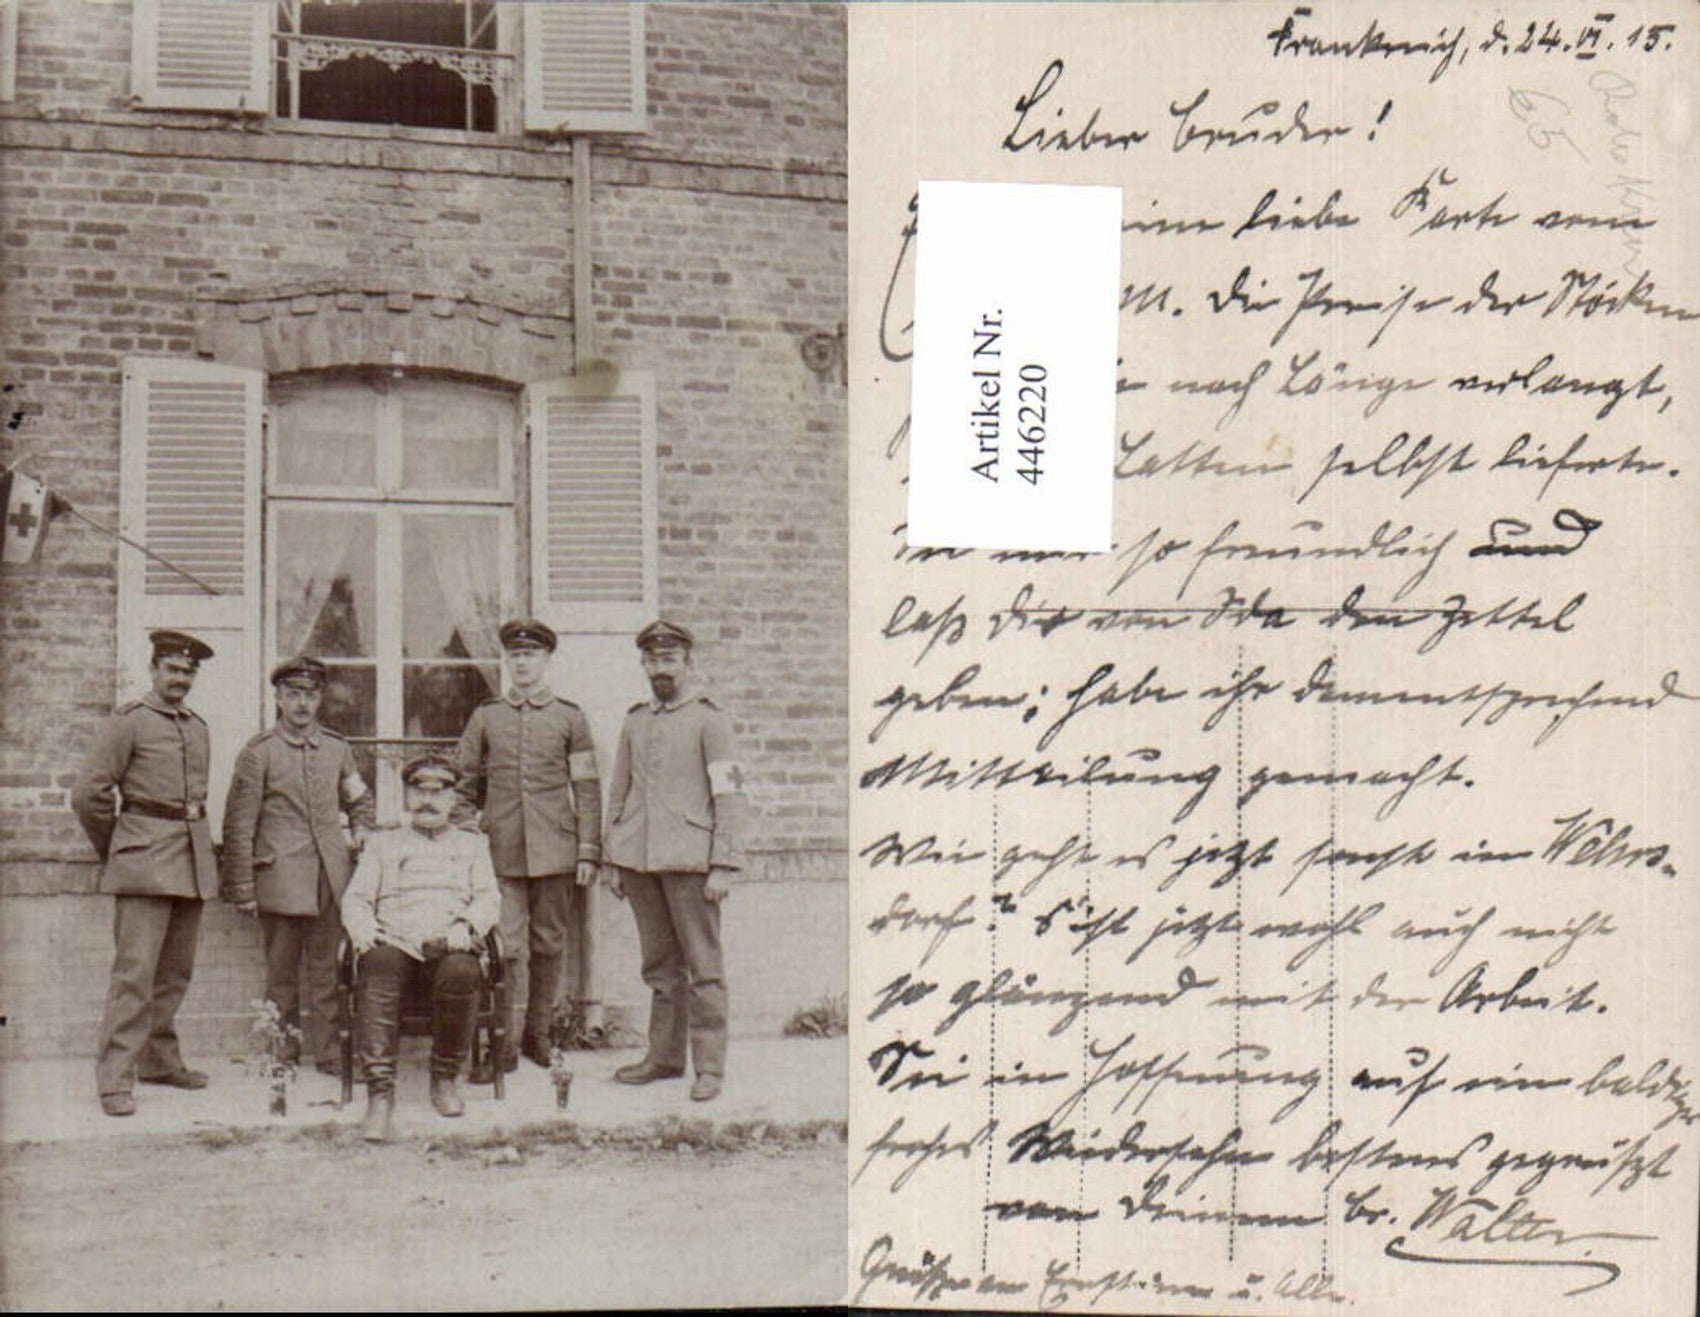 Frankreich, d. 24. VI. 15.
65
Lieber Bruder!
eine liebe Karte vom
M. Die Preise der Stöcken
nach Länge verlangt,
Latten selbst lieferte.
Sei nur so freundlich und
laß dir von Ida den Zettel
geben; habe ihr dementsprechend
Mitteilung gemacht.
Wie geht es jetzt sonst in Wehrs-
dorf? S'ist jetzt wohl auch nicht
so glänzend mit der Arbeit.
Sei in Hoffnung auf ein baldiges
frohes Wiedersehn bestens gegrüßt
von Deinem Br. Walter.
Grüße an u. Alle.
Artikel Nr.
446220